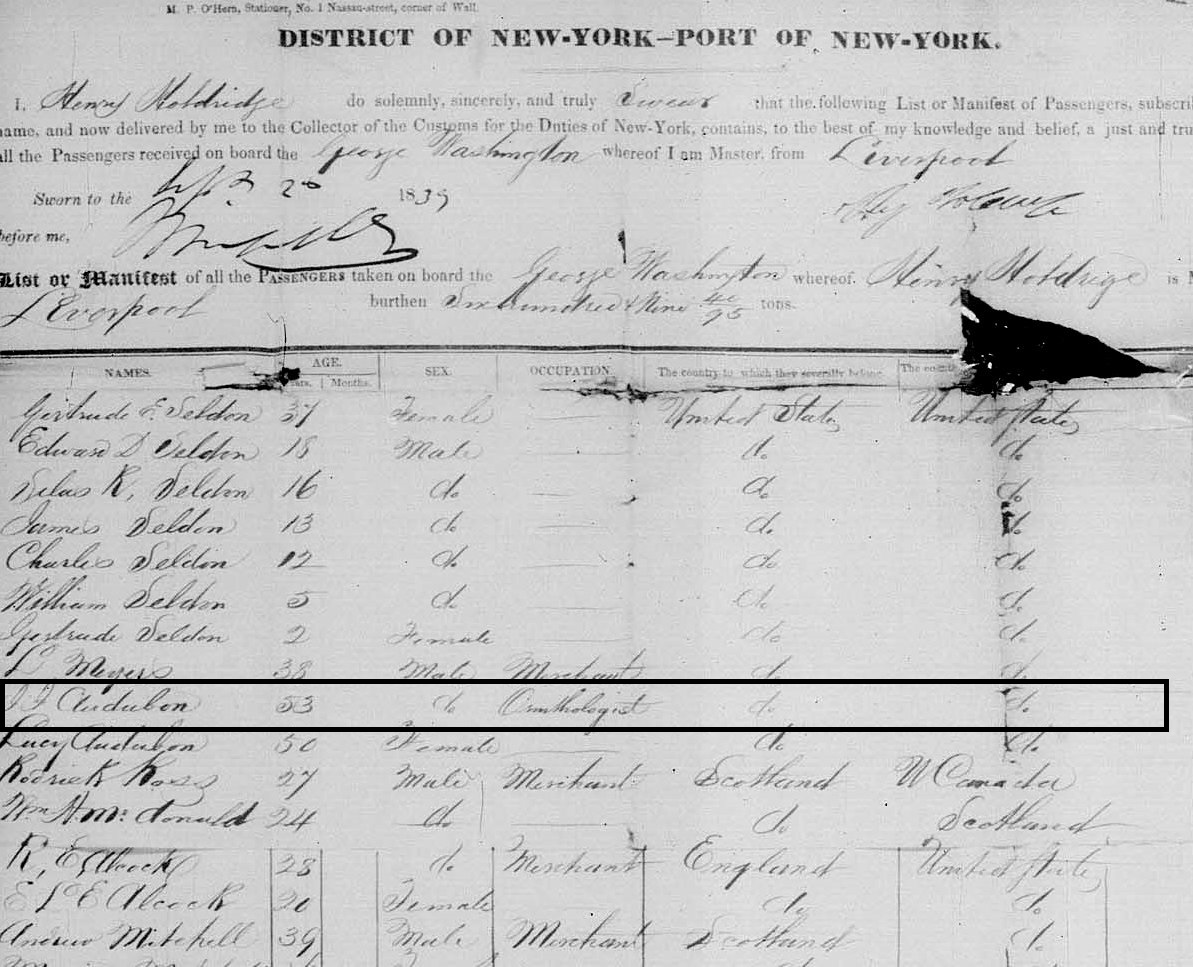 M. P. O'Hern, Stationer, No. 1 Nassau-street, corner of Wall.
DISTRICT OF NEW-YORK—PORT OF NEW-YORK.
I, Henry Holdridge do solemnly, sincerely, and truly Swear that the following List or Manifest of Passengers, subscri
name, and now delivered by me to the Collector of the Customs for the Duties of New-York, contains, to the best of my knowledge and belief, a just and tru
all the Passengers received on board the George Washington whereof I am Master, from Liverpool
Sworn to the 20 1839
before me,
List or Manifest of all the PASSENGERS taken on board the George Washington whereof Henry Holdrige is M
Liverpool burthen Six hundred & Nine 40/95 tons.
NAMES. AGE. SEX. OCCUPATION The country to which they severally belong.
Months.
Gertrude E. Seldon 37 Female United States United States
Edward D Seldon 18 Male do do
Silas R, Seldon 16 do do do
James Seldon 13 do do do
Charles Seldon 12 do do do
William Seldon 5 do do do
Gertrude Seldon 2 Female do do
Meyers 38 Male Merchant do do
J J Audubon 53 do Ornithologist do do
Lucy Audubon 50 Female do do
Rodrick Ross 27 Male Merchant Scotland U Canada
Wm H. McDonald 24 do do Scotland
R, E, Alcock 23 do Merchant England United States
E L E Alcock 20 Female do do
Andrew Mitchell 39 Male Merchant Scotland do